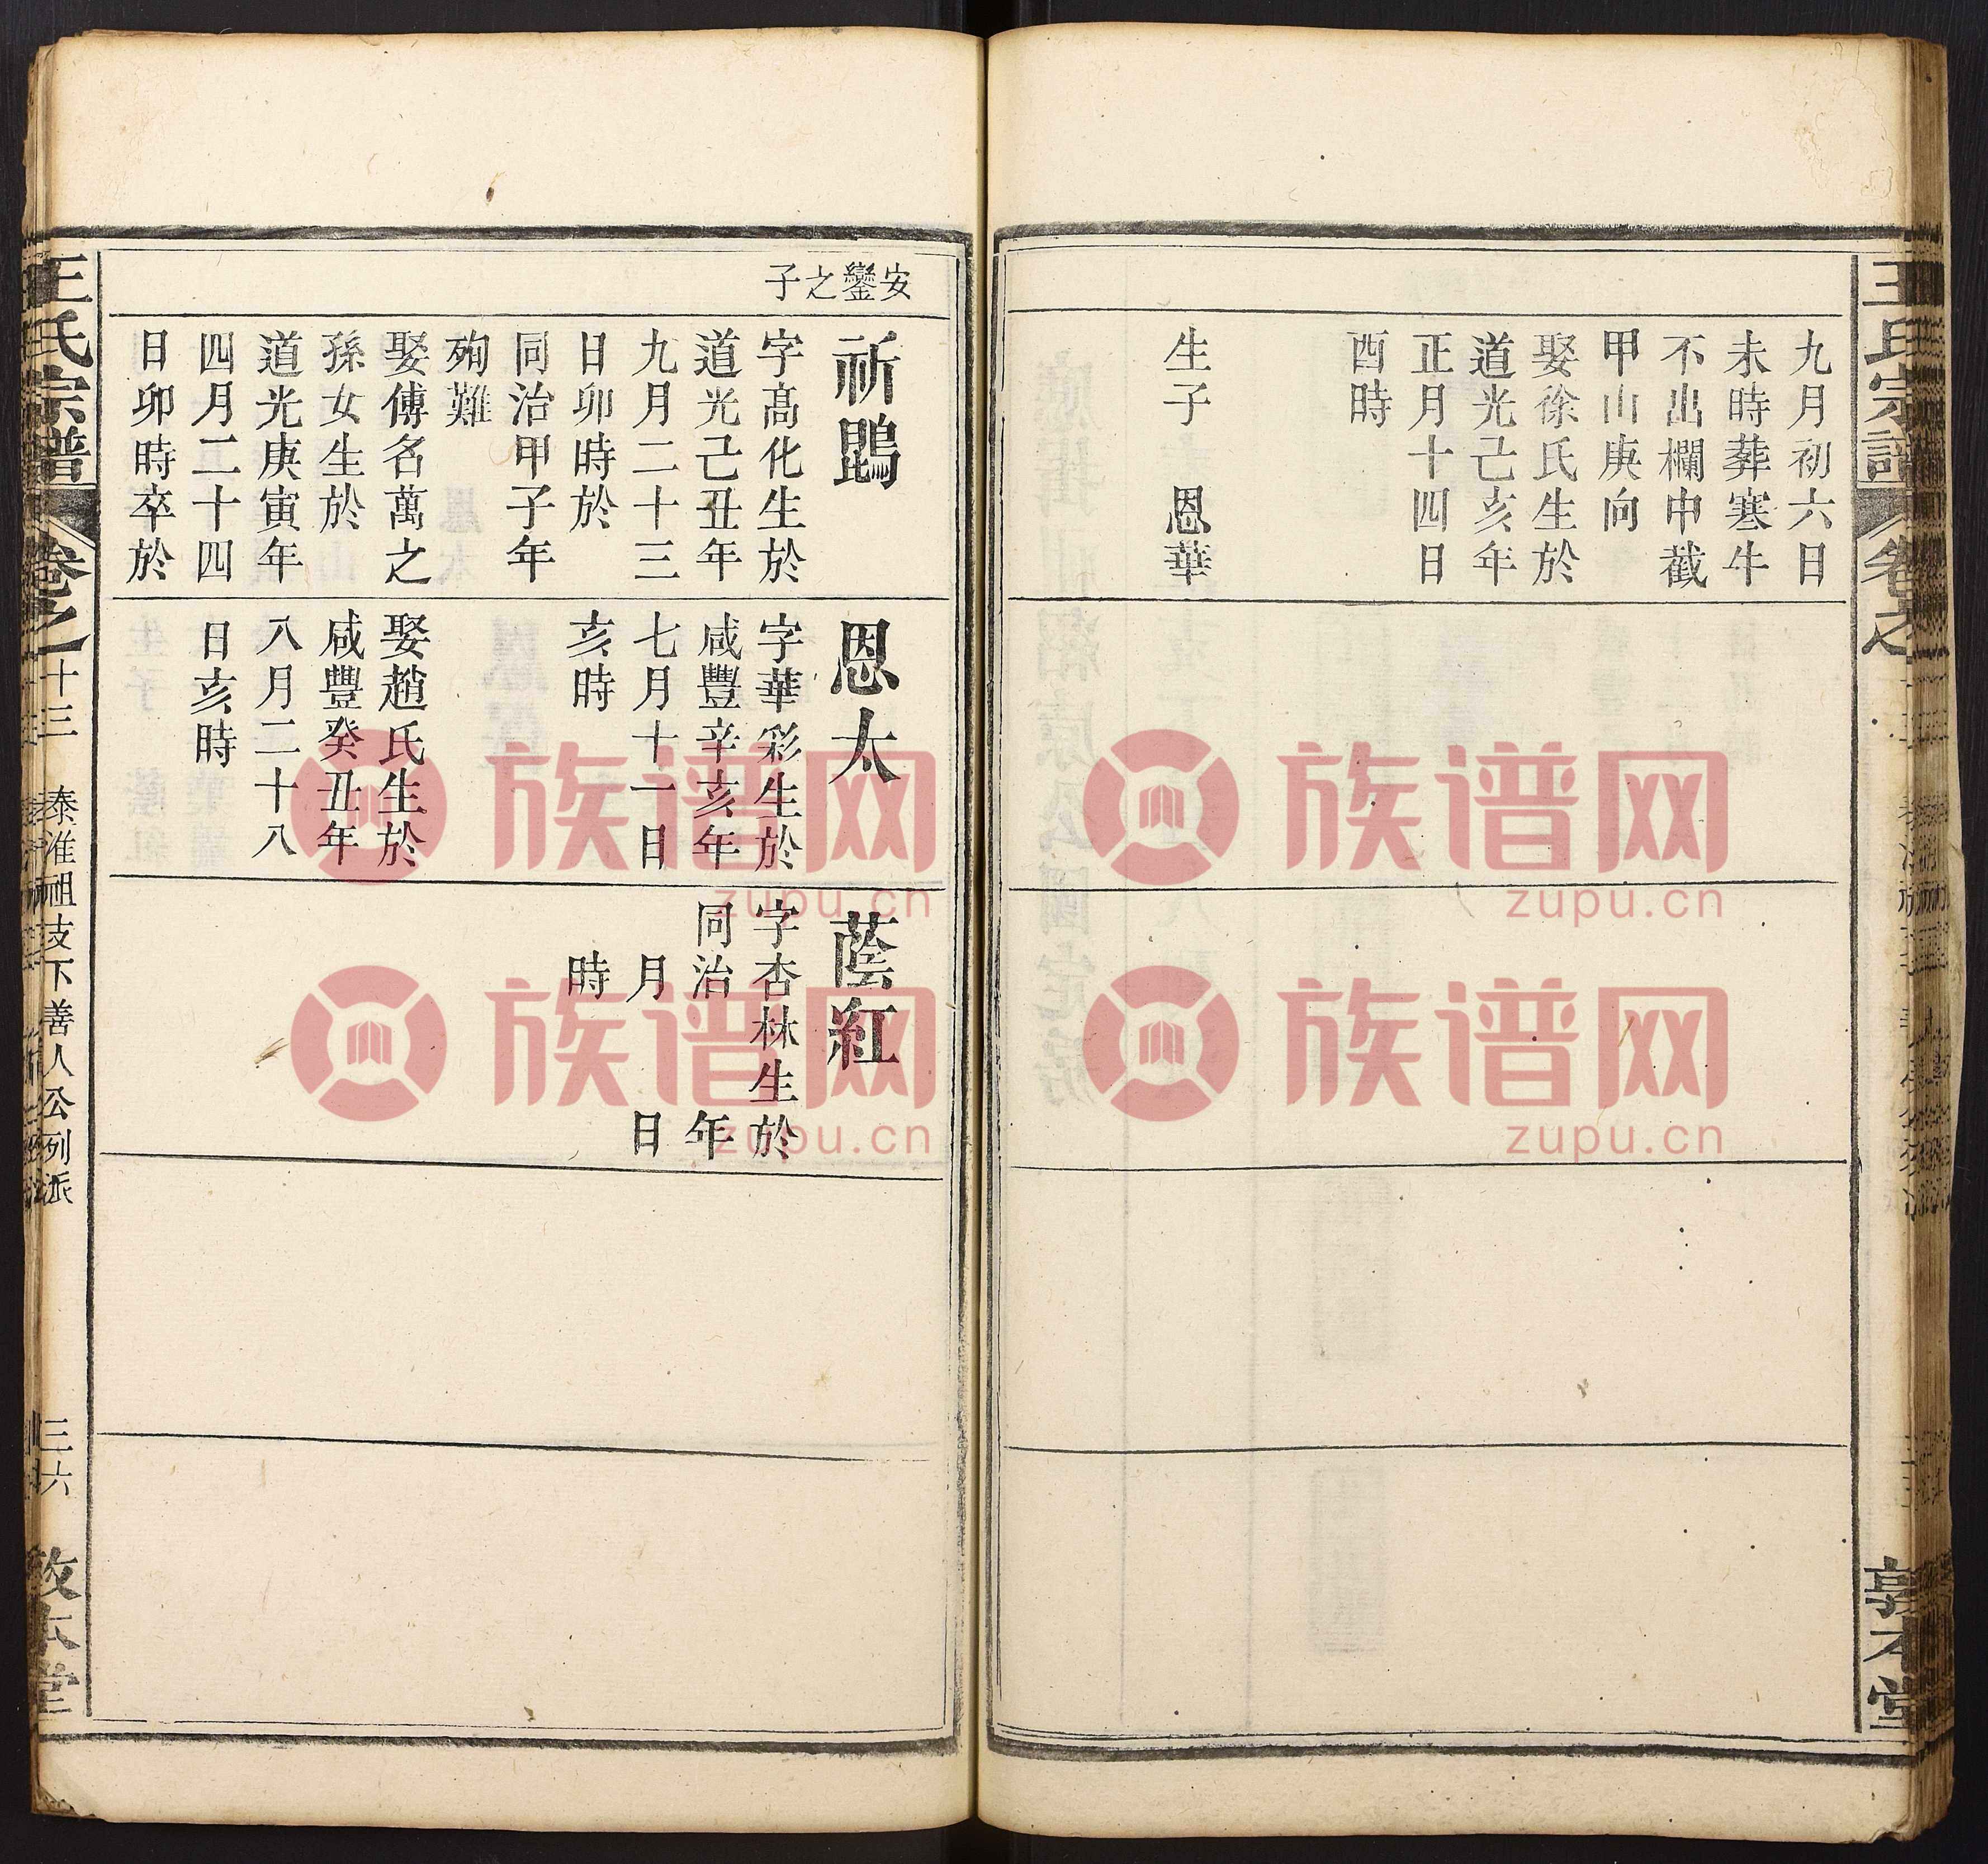 王氏宗譜
九月初六日
未時葬寒牛
不出欄申截
甲山庚向
娶徐氏生於
道光己亥年
正月十四日
酉時
生子 恩華
安鑾之子
祈鵾
字高化生於
道光己丑年
九月二十三
日卯時於
同治甲子年
殉難
娶傅名萬之
孫女生於
道光庚寅年
四月二十四
日卯時卒於
恩太
字華彩生於
咸豐辛亥年
七月十一日
亥時
娶趙氏生於
咸豐癸丑年
八月二十八
日亥時
蔭紅
字杏林生於
同治 年
月 日
時
王氏宗譜 卷之十三 泰淮祖支下善人公列派 三六 敦本堂
族谱网
zupu.cn
族谱网
zupu.cn
族谱网
zupu.cn
族谱网
zupu.cn